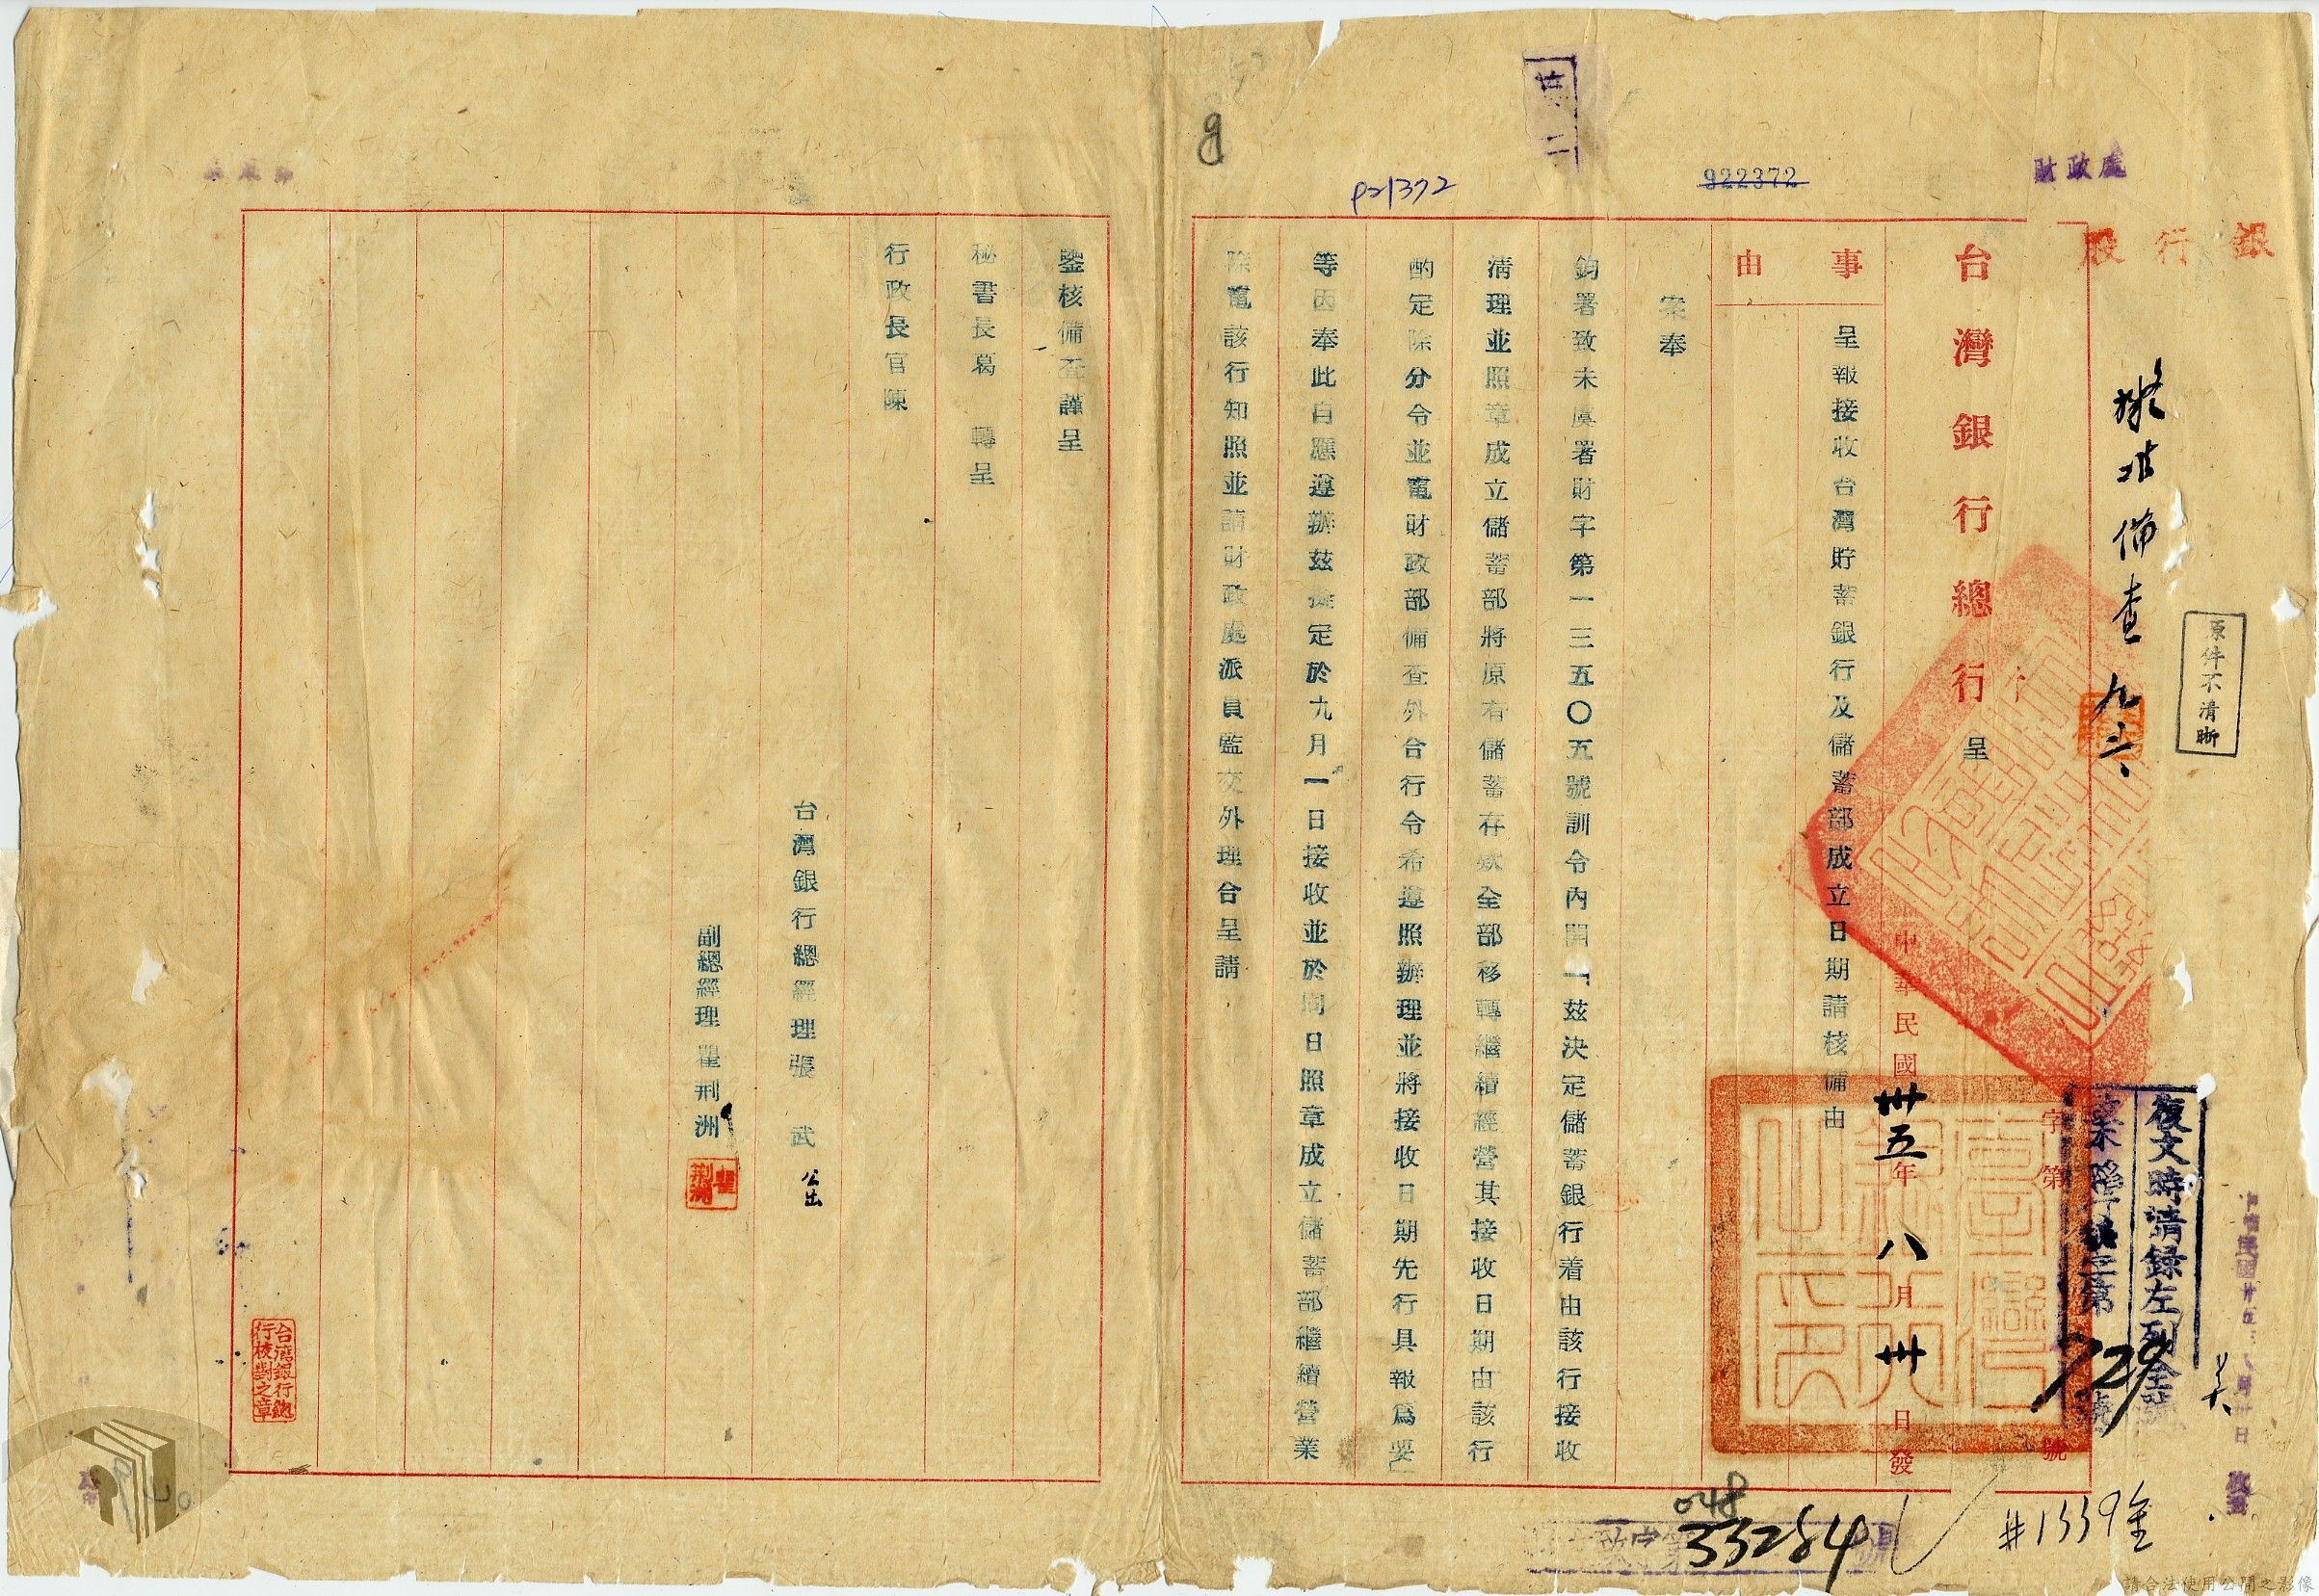 財政處
銀行股
擬准備查 九、三、
原件不清晰
台灣銀行總行 呈
字第 號
復文時請錄左列全號
729
中華民國卅五年八月卅日發
事由
呈報接收台灣貯蓄銀行及儲蓄部成立日期請核備由
案奉
鈞署致未虞署財字第一三五〇五號訓令內開「茲決定儲蓄銀行着由該行接收
清理並照章成立儲蓄部將原有儲蓄存款全部移轉繼續經營其接收日期由該行
酌定除分令並電財政部備查外合行令希遵照辦理並將接收日期先行具報為要」
等因奉此自應遵辦茲擬定於九月一日接收並於同日照章成立儲蓄部繼續營業
除電該行知照並請財政處派員監交外理合呈請
鑒核備查謹呈
秘書長葛 轉呈
行政長官陳
台灣銀行總經理張 武 公出
副總經理瞿荊洲
瞿荊洲
台灣銀行總行校對之章
922372
P21372
048
33284
#1339金
請合法使用公開之影像